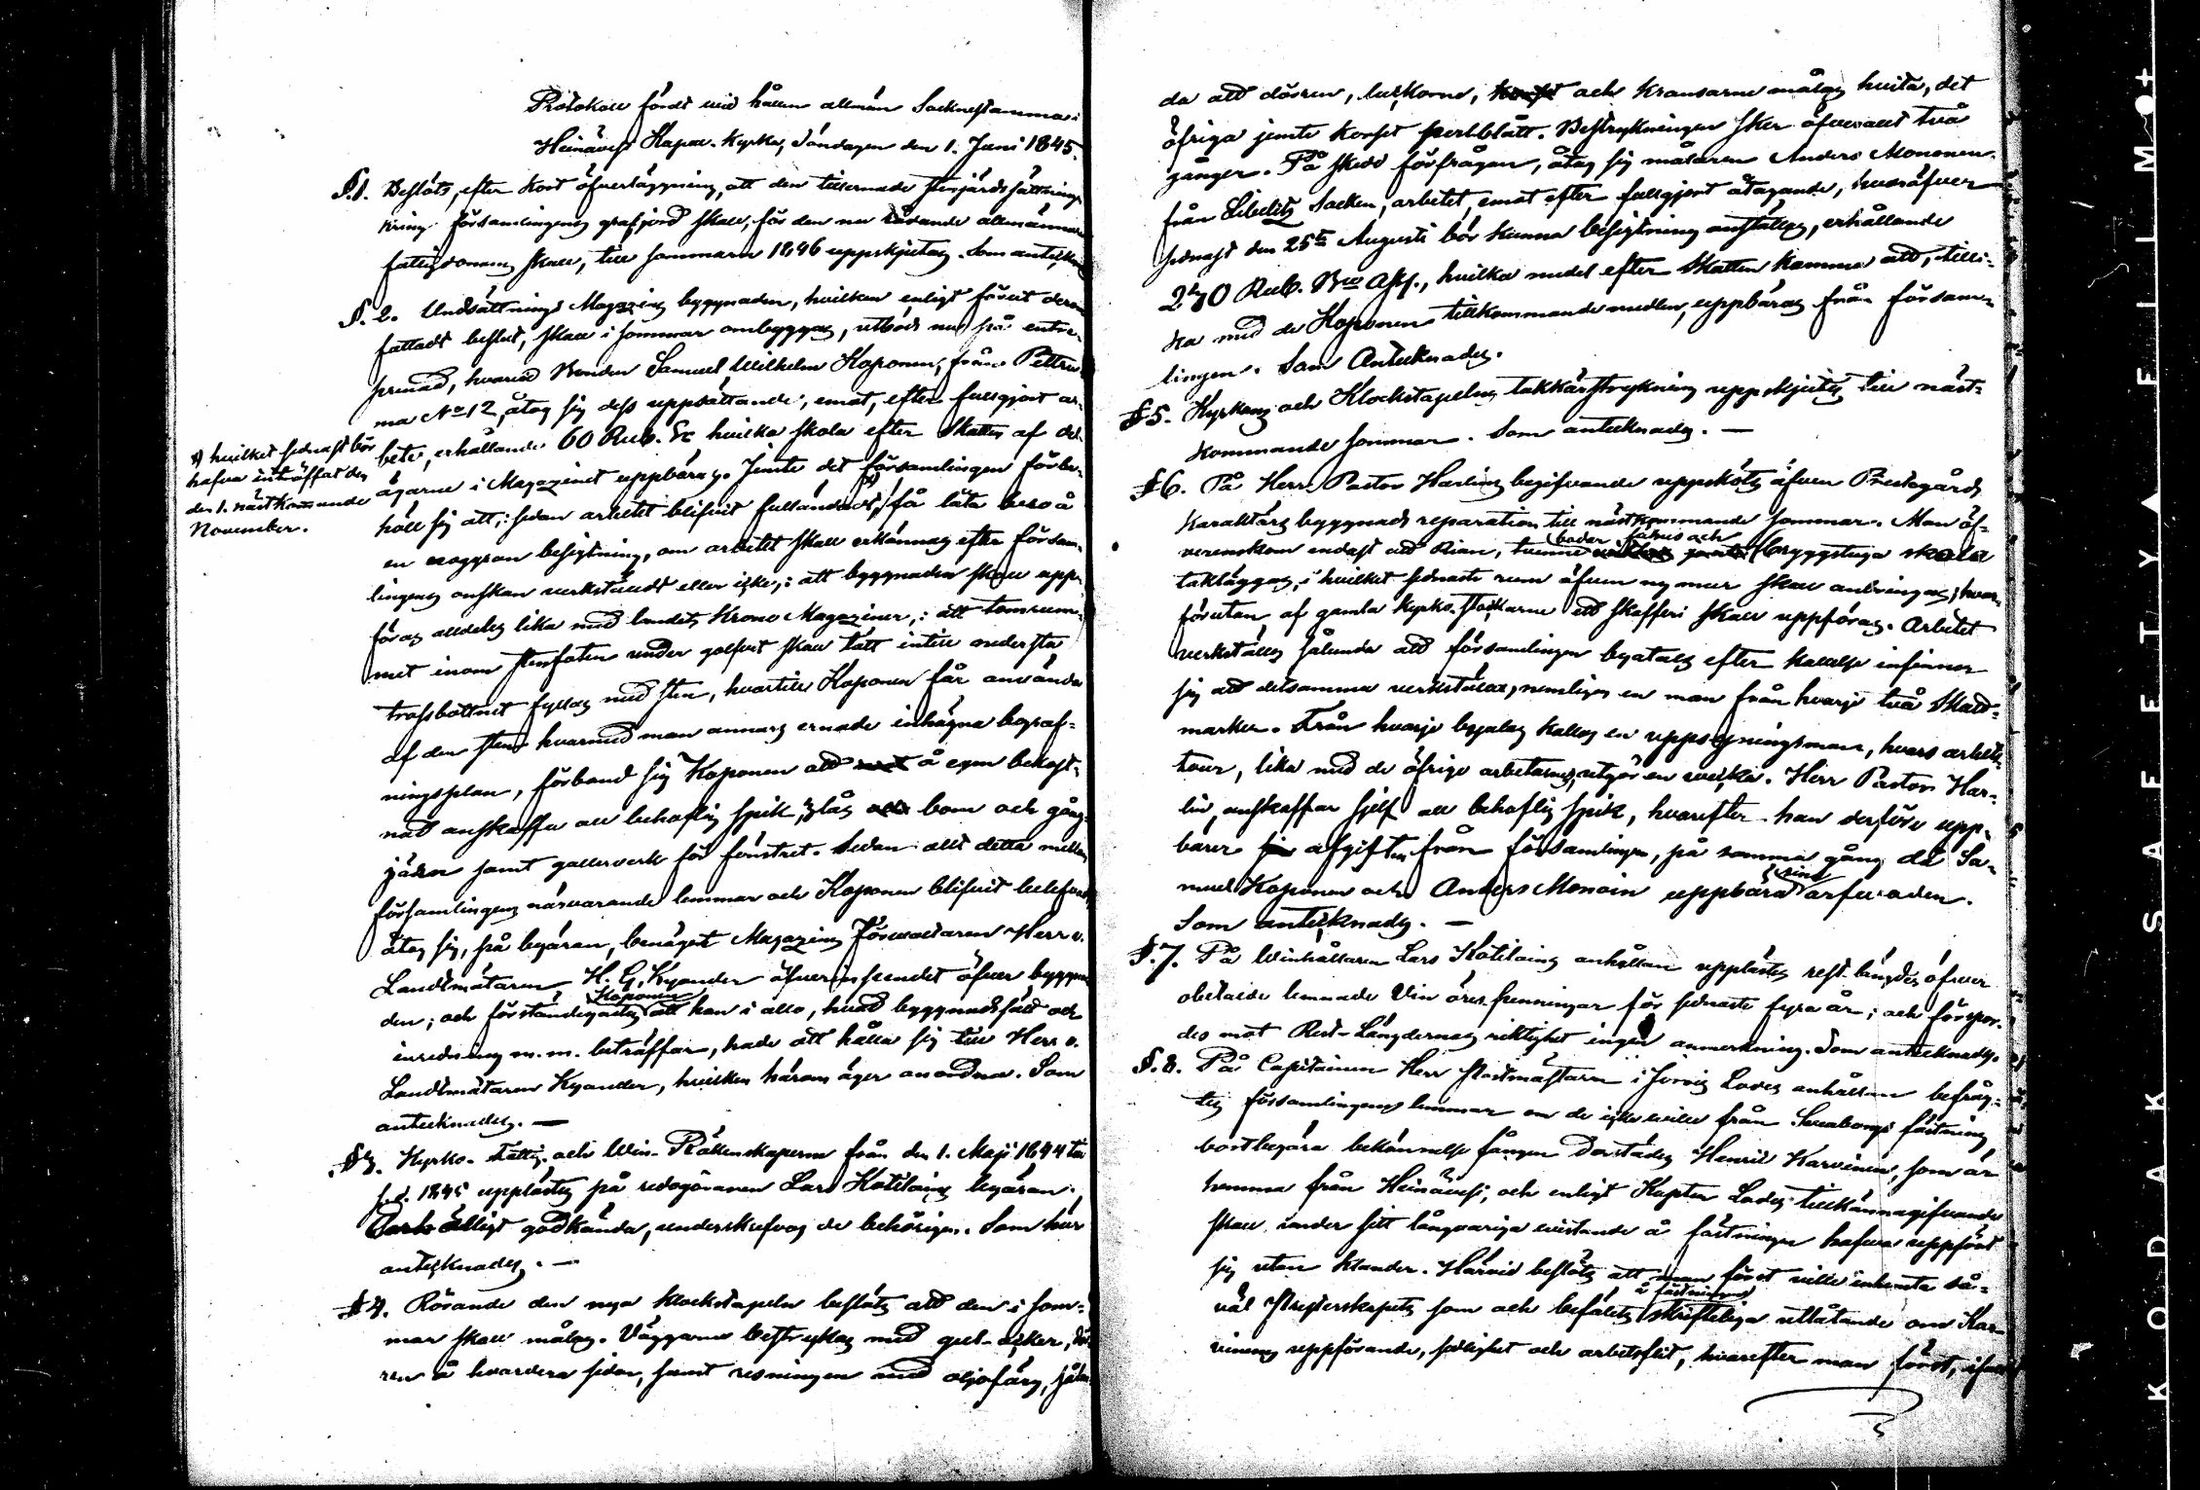 Protokoll fördt vid hållen allmän Sockenstämma i
Heinävesi Kapell-kyrka, Söndagen den 1. Juni 1845.
§.1. Beslöts, efter kort öfverläggning, att den tillernade stengärds sättningen
kring församlingens grafjord skall, för den nu rådande allmänna
fattigdomen skull, till sommaren 1846 uppskjutas. Som antecknades
§. 2. Undsättnings Magazins byggnaden, hvilken enligt förut derom
fattadt beslut, skall i sommar ombyggas, utbjöds nu på entre-
prenad, hvarvid Bonden Samuel Wilhelm Koponen, från Petru-
ma No 12, åtog sig dess uppsättande, emot, efter fullgjort ar-
bete, erhållande 60 Rub. Sr hvilka skola efter skatten af del-
ägarne i Magazinet uppbäras. Jemte det församlingen förbe-
höll sig att, : sedan arbetet blifvit fulländadt, #) få låta bero å
en noggran besigtning, om arbetet skall erkännas efter försam-
lingens önskan verkstäldt eller icke, : att byggnaden skall upp-
föras alldeles lika med landets Krono Magaziner, : att tomrum-
met inom stenfoten under golfvet skall tätt intill nedersta
trossbottnet fyllas med sten, hvartill Koponen får använda
af den sten hvarmed man annars ernade inhägna begraf-
ningsplan, förband sig Koponen att å egen bekost-
nad anskaffa all behöflig spik, lås bom och gång-
järn samt gallerverk för fönstret. Sedan allt detta mellan
församlingens närvarande lemmar och Koponen blifvit beslutadt,
åtog sig, på begäran, benäget Magazins Förvaltaren Herr v.
Landtmätaren H. G. Kyander öfverinseendet öfver byggna-
den; och förständigades Koponen att han i allo, hvad byggnadssätt och
inredning m.m. beträffar, hade att hålla sig till Herr v.
Landtmätaren Kyander, hvilken härom äger anordna. Som
antecknades. —
#) hvilket sednast bör
hafva inträffat den
den 1. nästkommande
November.
§3. Kyrko- Fattig- och Vin- Räkenskaperne från den 1. Maji 1844 till
s.d. 1845 upplästes på redogöraren Lars Kotilains begäran.
godkända, underskrefvos de behörigen. Som här
antecknades. —
§4. Rörande den nya klockstapeln beslöts att den i som-
mar skall målas. Väggarne bestrykas med gul-ocker, dör-
ren å hvardera sidan, samt resningen med oljefärg, såle-
da att dörren, luckorne, och kransarne målas hvita, det
öfriga jemte korset perlblått. Bestrykningen sker öfverallt två
gånger. På skedd förfrågan, åtog sig målaren Anders Mononen
från Libelitz Socken, arbetet, emot efter fullgjort åtagande, hvaröfver
sednast den 25te Augusti bör kunna besigtning anställas, erhållande
270 Rub. Bco Ass., hvilka medel efter skatten komma att, tilli-
ka med de Koponen tillkommande medlen, uppbäras från försam-
lingen. Som Antecknades.
§5. Kyrkans och Klockstapelns taktjärstrykning uppskjutes till näst-
kommande sommar. Som antecknades. —
§6. På Herr Pastor Harlins begifvande uppsköts äfven Prestegårds
karaktärs byggnads reparation till nästkommande sommar. Man öf-
verenskom endast att Rian, tvenne bodar, fähus och bryggstuga skola
takläggas, i hvilket sednaste rum äfven ny mur skall anbringas; hvar-
förutan af gamla kyrko-stockarne ett skafferi skall uppföras. Arbetet
verkställes sålunda att församlingen byatals efter kallelse infinner
sig att detsamma verkställa, nemligen en man från hvarje två Skatt-
marker. Från hvarje byalag kallas en uppsyningsman, hvars arbets-
tour, lika med de öfriga arbetarnes, utgör en vecka. Herr Pastor Har-
lin, anskaffar sjelf all behöflig spik, hvarefter han derföre upp-
bärer afgiften från församlingen, på samma gång då Sa-
muel Koponen och Anders Monoin uppbära sina arfvoden.
Som antecknades. —
§.7. På Vinhållaren Lars Kotilains anhållan upplästes rest-längder öfver
obetalde lemnade Vin öres penningar för sednaste fyra år; och förspor-
des mot Rest-Längdernas riktighet ingen anmerkning. Som antecknades.
§.8. På Capitainen Herr Postmästaren i Jorois Lodes anhållan befråg-
tes församlingens lemmar om de icke ville från Sveaborgs fästning
bortbegära bekännelse fången derstädes Henric Karvinen, som är
hemma från Heinävesi, och enligt Kapten Lodes tillkännagifvande
skall under sitt långvariga vistande å fästningen hafva uppfört
sig utan klander. Härvid beslöts att man först ville inhemta så-
väl Presterskapets som och befälets å fästningen skrifteliga utlåtande om Kar-
vinens uppförande, sedlighet och arbetsflit, hvarefter man först, ifall